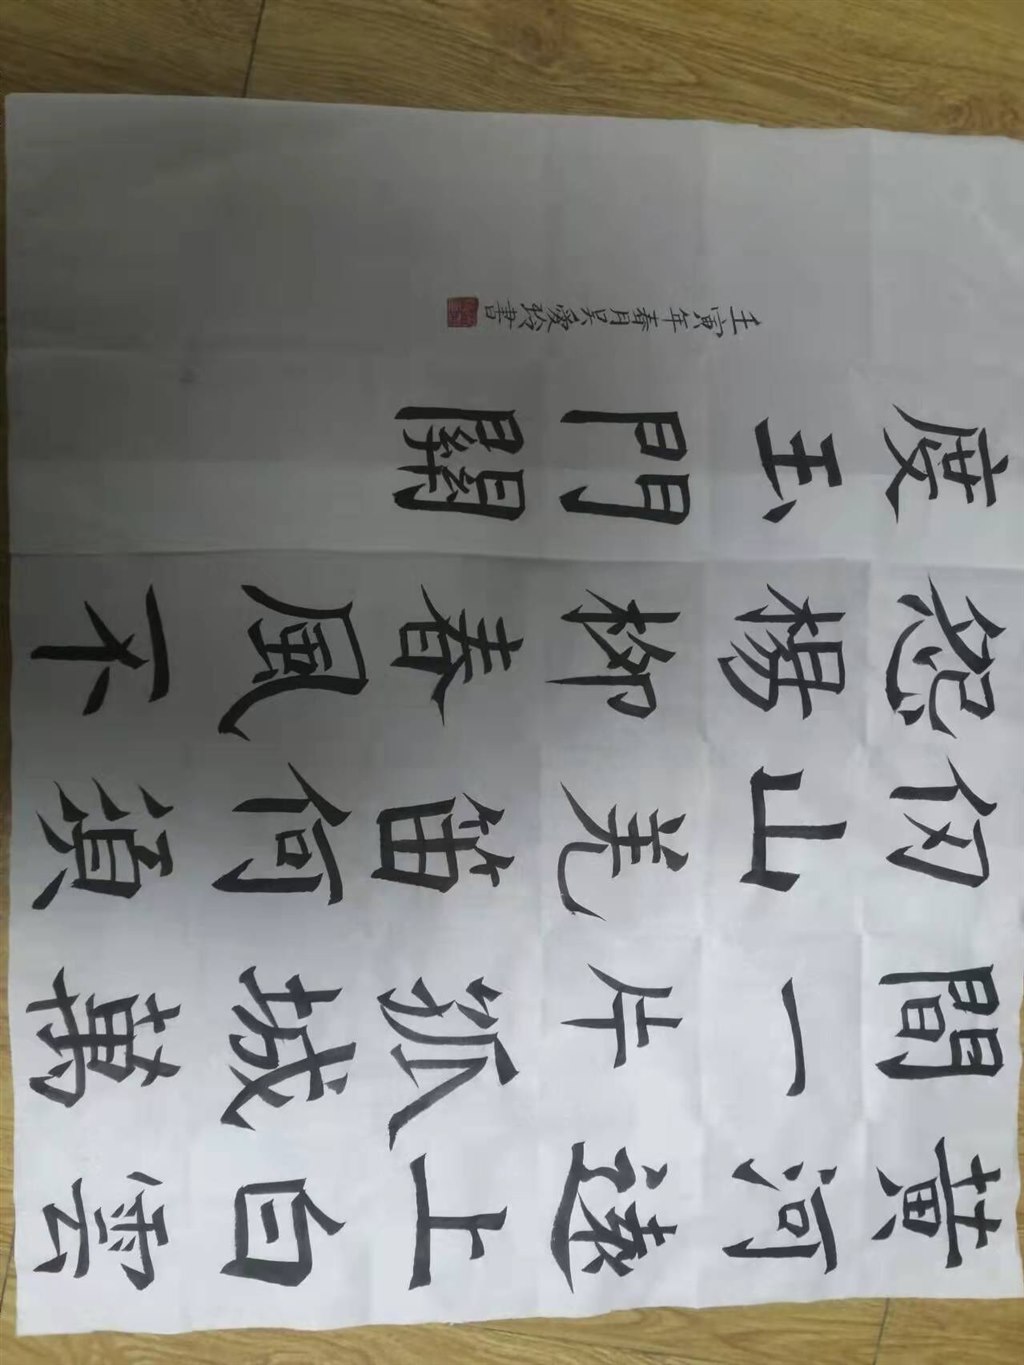 黄河遠上白雲
間一片孤城萬
仞山羌笛何須
怨楊柳春風不
度玉門關
壬寅年春月吴愛玲書